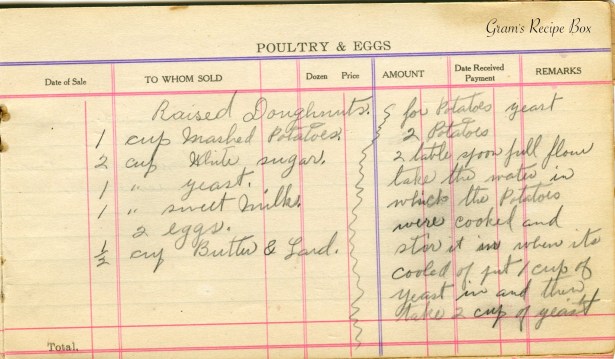 Gram's Recipe Box
POULTRY & EGGS
Date of Sale TO WHOM SOLD Dozen Price AMOUNT Date Received Payment REMARKS
Raised Doughnuts.
1 cup Mashed Potatoes.
2 cup White sugar.
1 " yeast.
1 " sweet Milk.
2 eggs.
1/2 cup Butter & Lard.
for Potatoes yeast
2 Potatoes
2 table spoon full flour
take the water in
which the Potatoes
were cooked and
stir it in when its
cooled of put 1 cup of
yeast in and then
take 2 cup of yeast
Total,